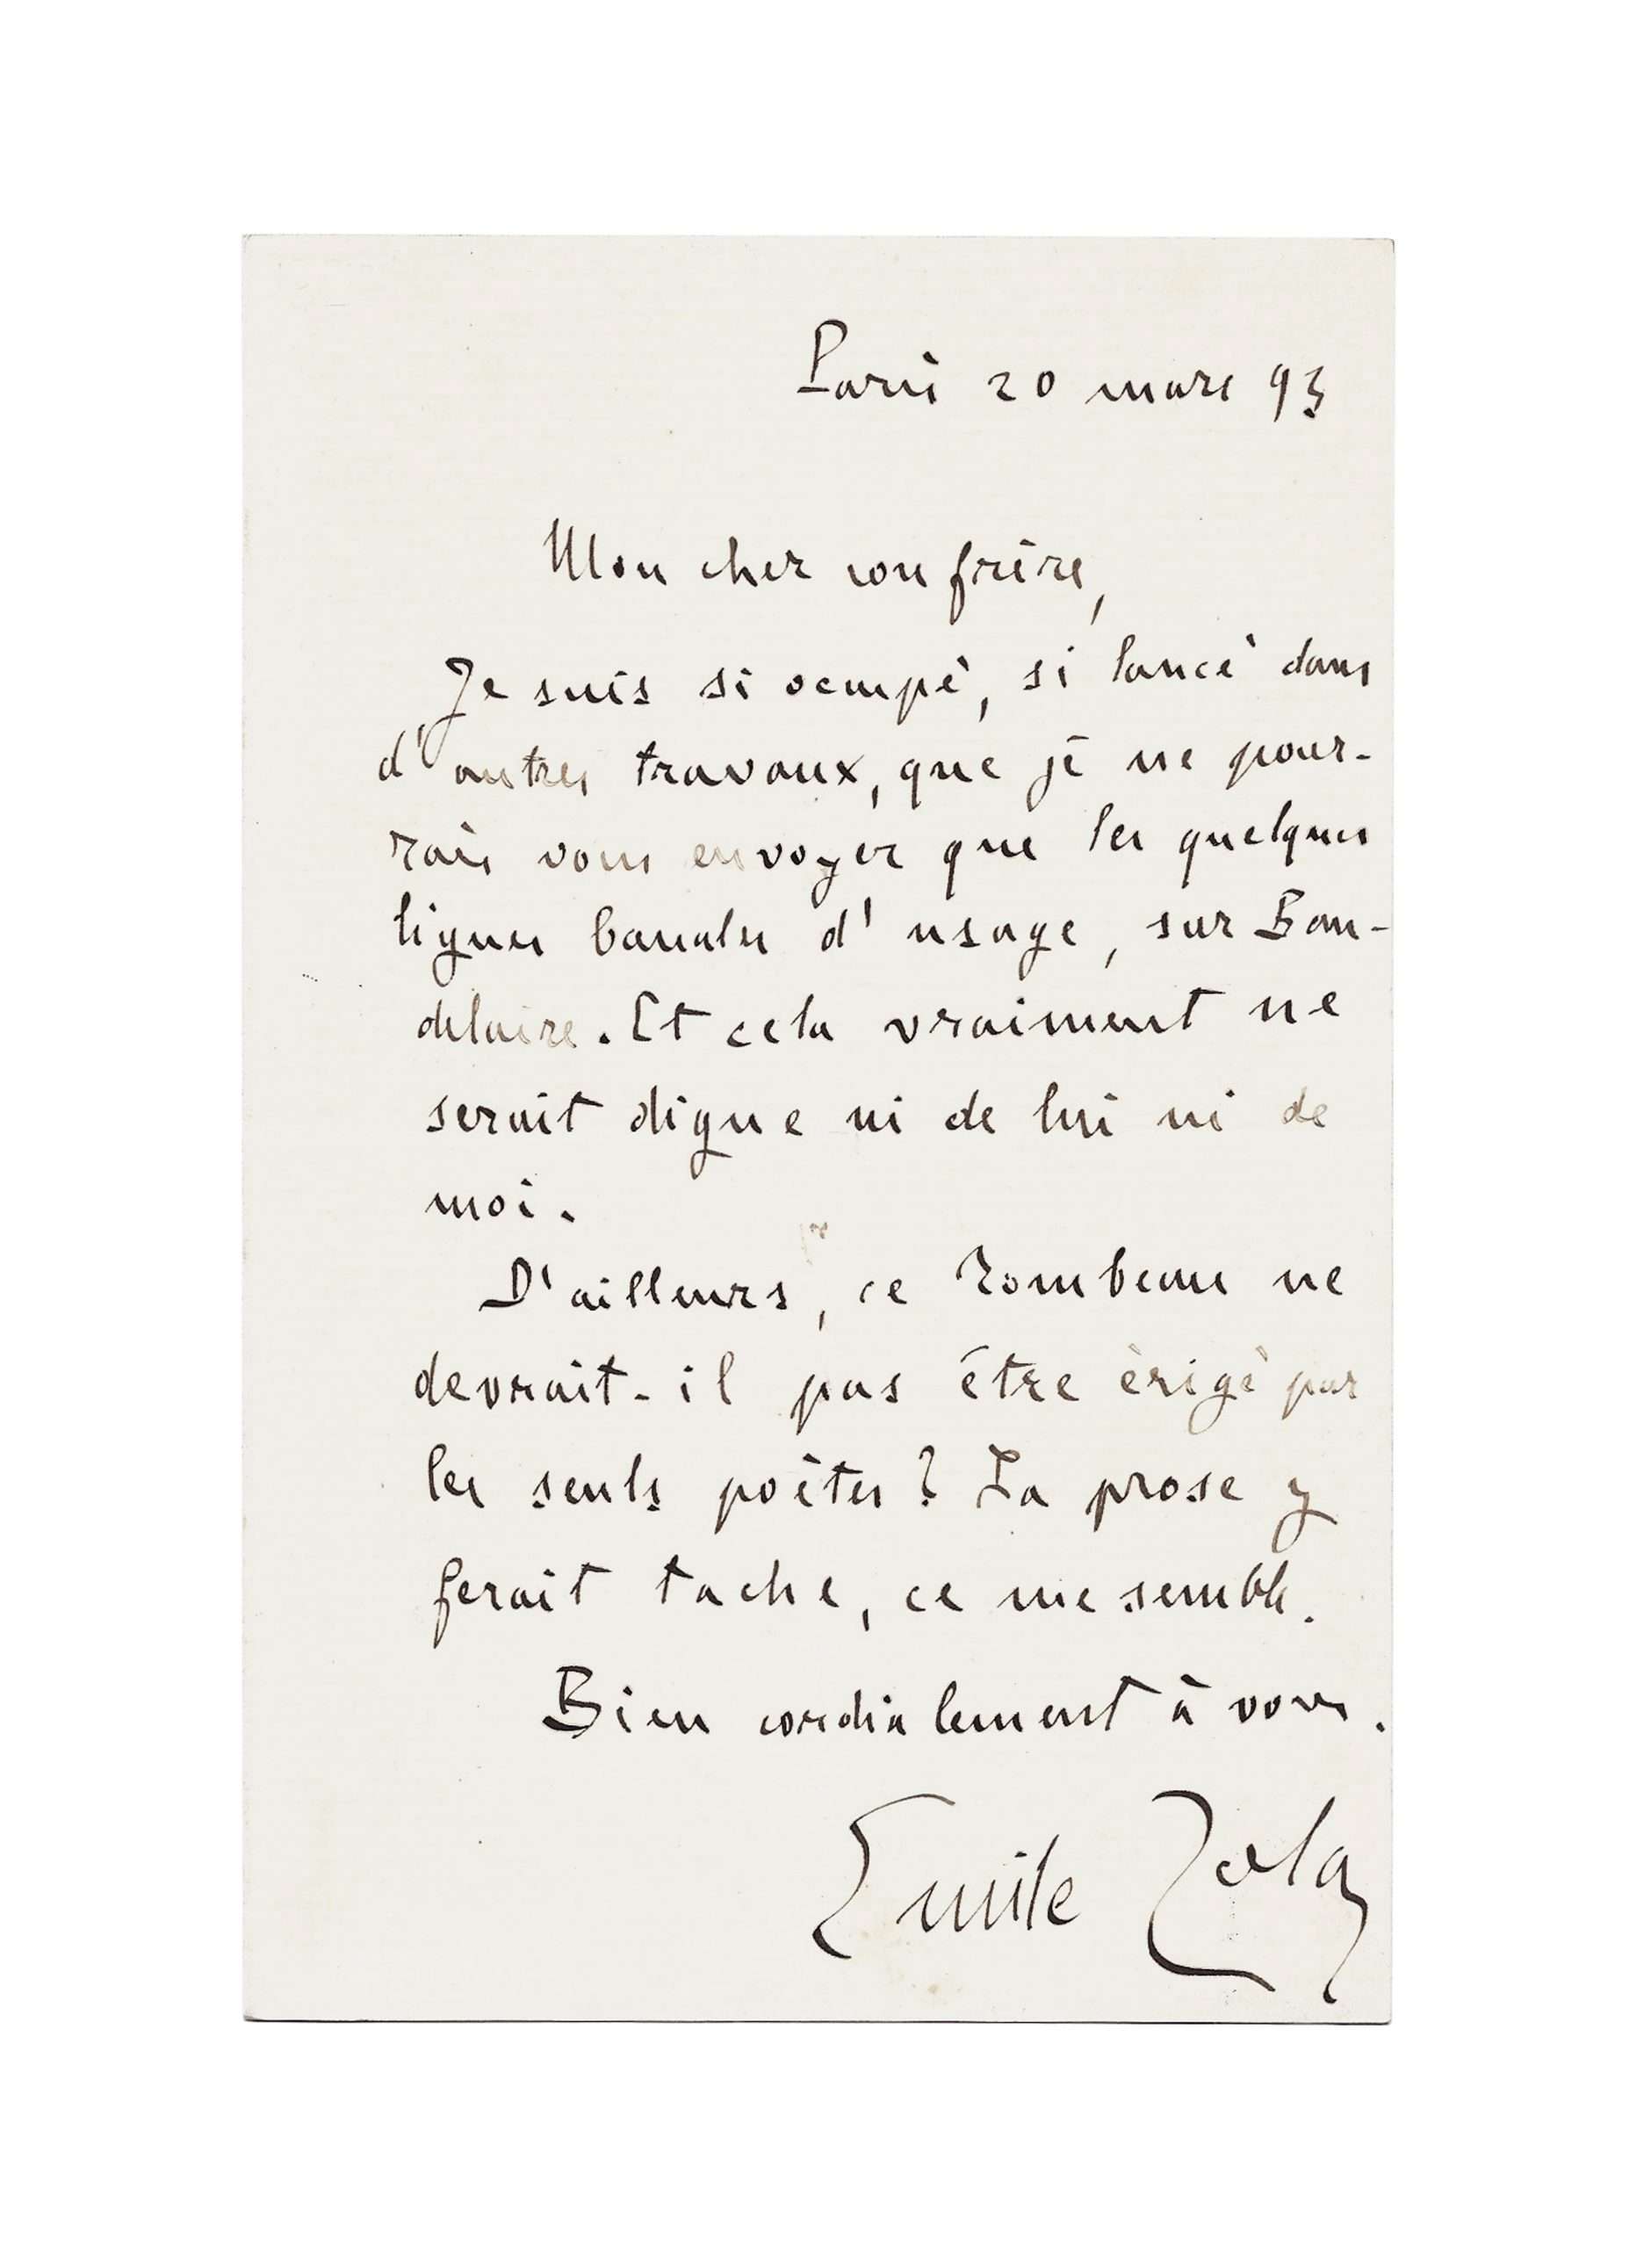 Paris 20 mars 93
Mon cher confrère,
Je suis si occupé, si lancé dans
d'autres travaux, que je ne pour-
rais vous envoyer que les quelques
lignes banales d'usage, sur Bau-
delaire. Et cela vraiment ne
serait digne ni de lui ni de
moi.
D'ailleurs, ce Tombeau ne
devrait-il pas être érigé par
les seuls poètes ? La prose y
ferait tache, ce me semble.
Bien cordialement à vous.
Emile Zola